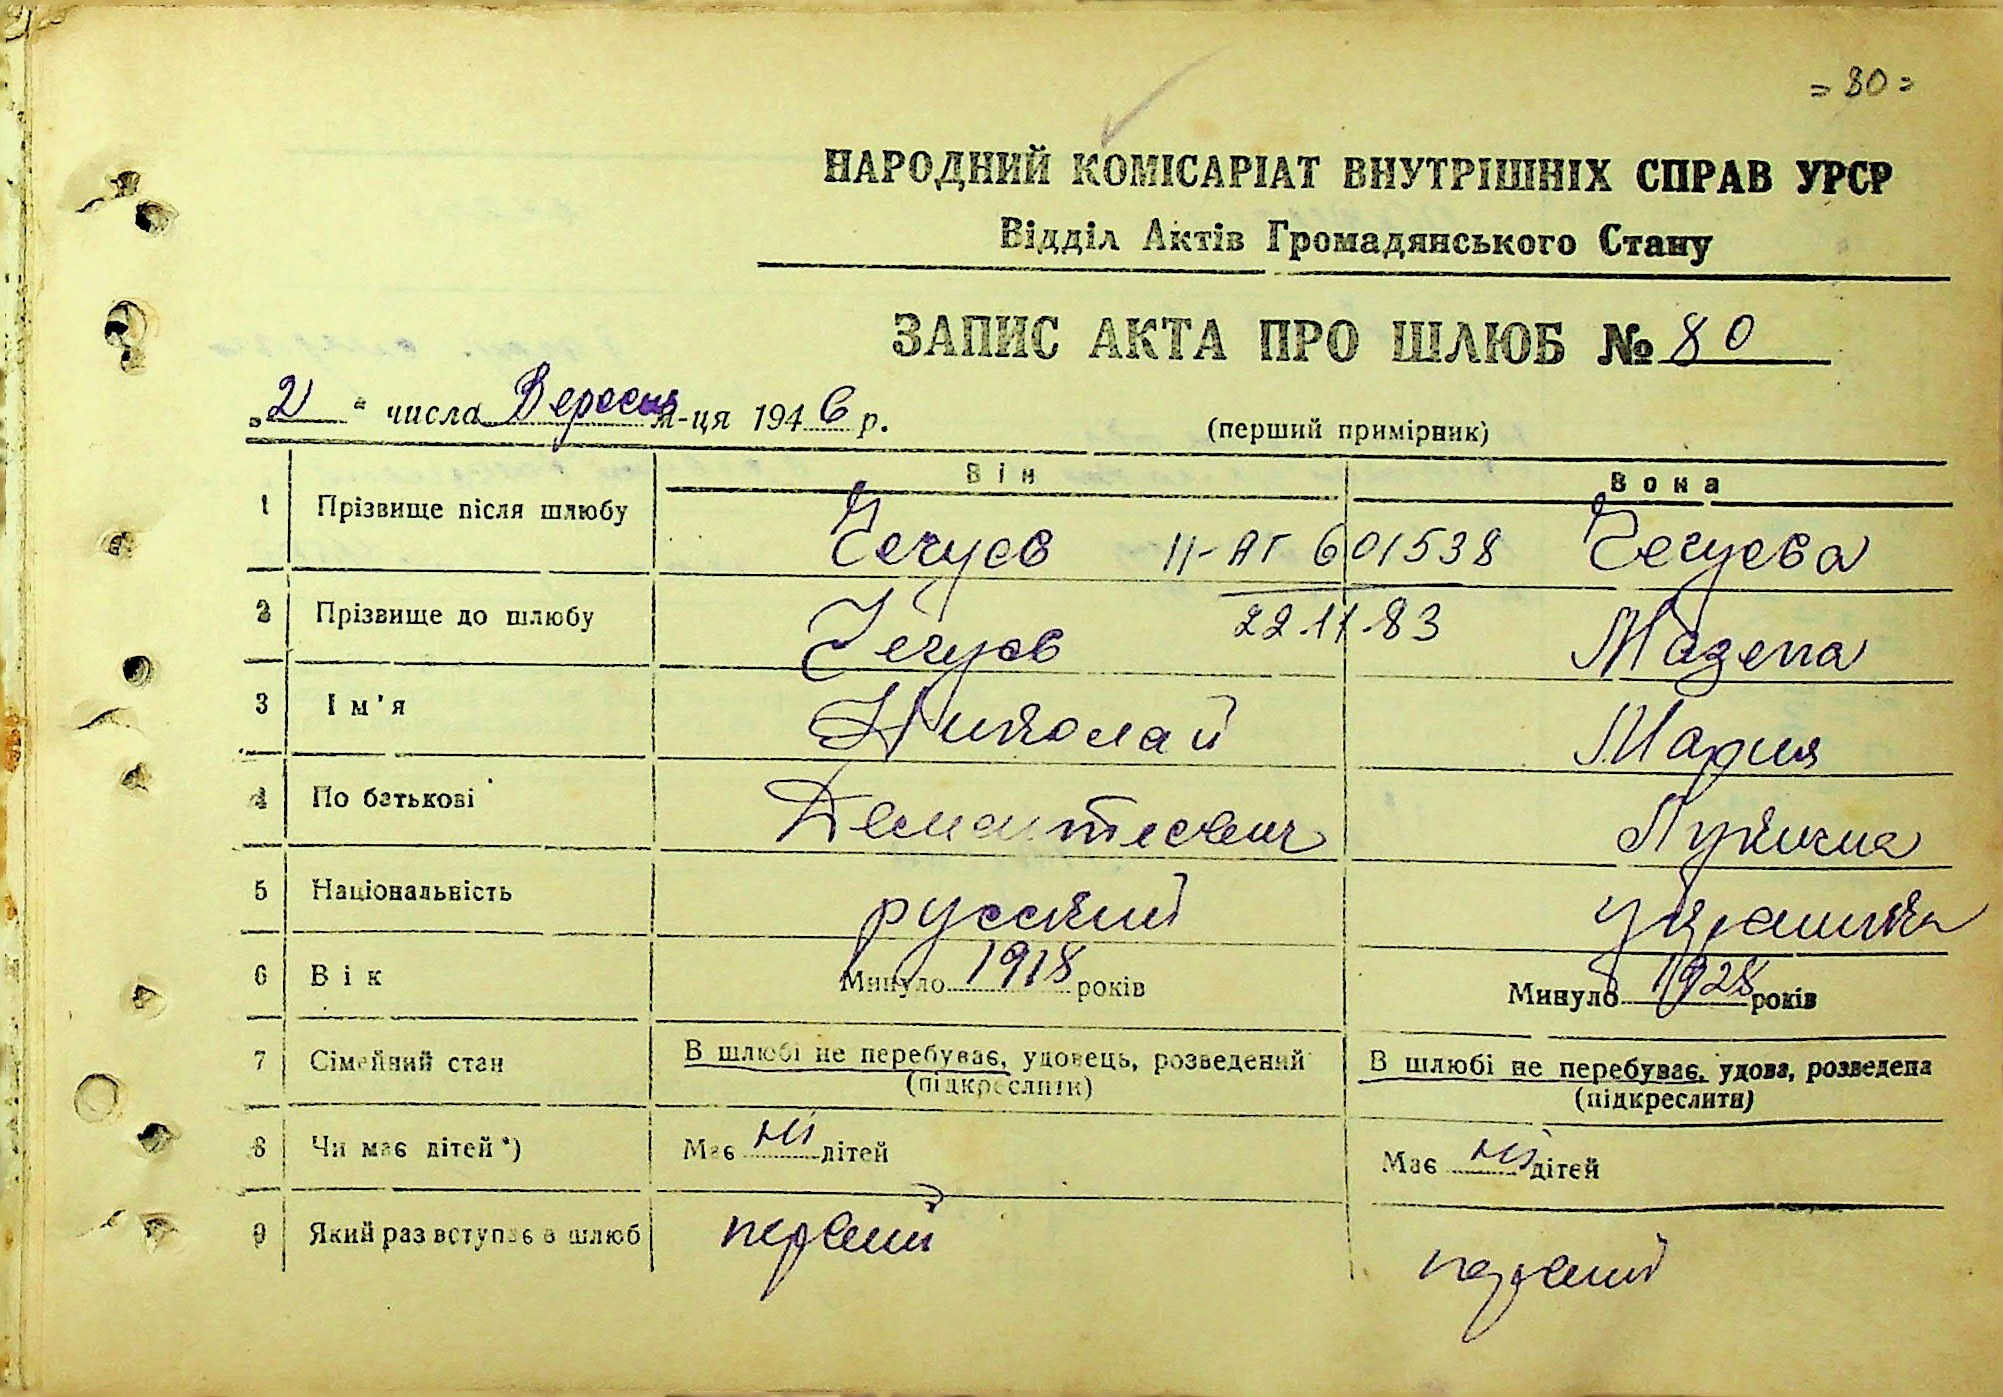 = 80 =
НАРОДНИЙ КОМІСАРІАТ ВНУТРІШНІХ СПРАВ УРСР
Відділ Актів Громадянського Стану
ЗАПИС АКТА ПРО ШЛЮБ № 80
„2" числа Вересня м-ця 1946 р. (перший примірник)
Він Вона
1 Прізвище після шлюбу Чечуєв II-АГ 601538 Чечуєва
2 Прізвище до шлюбу Чечуєв 22.11.83 Мазепа
3 Ім'я Николай Мария
4 По батькові
5 Національність русский
6 Вік Минуло 1918 років Минуло 1928 років
7 Сімейний стан В шлюбі не перебуває, удовець, розведений В шлюбі не перебуває, удова, розведена
(підкреслити) (підкреслити)
8 Чи має дітей*) Має ні дітей Має ні дітей
9 Який раз вступає в шлюб первий первий